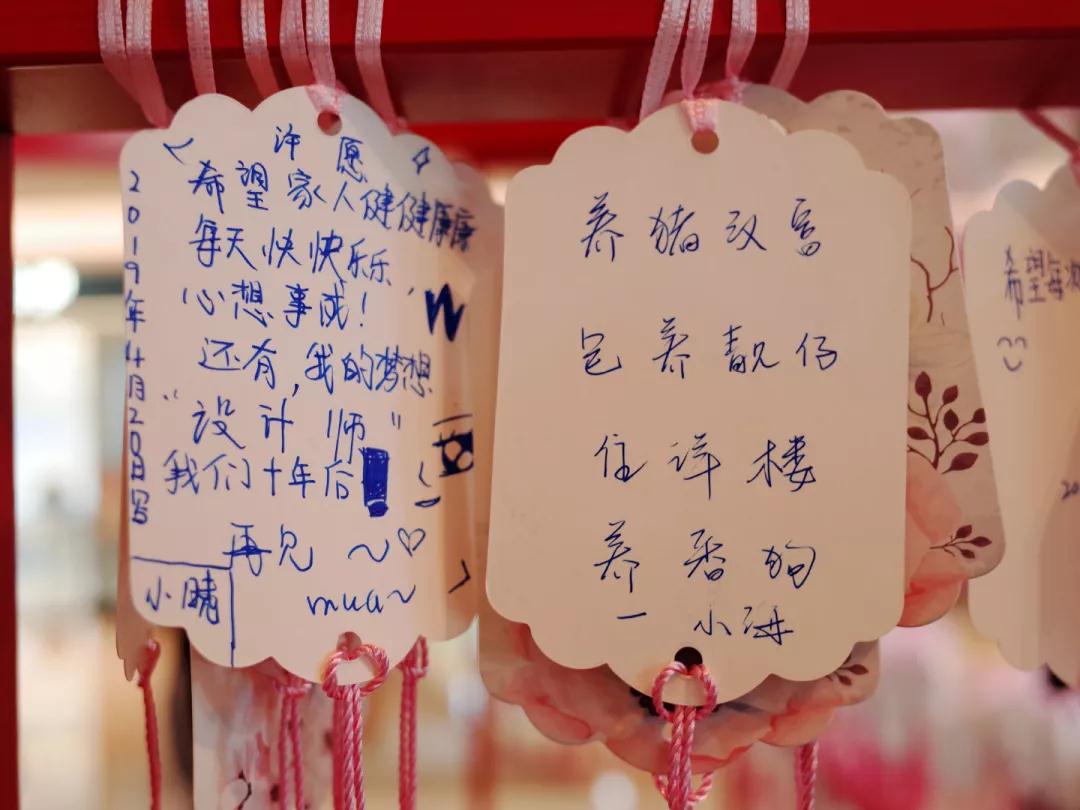 许愿
希望家人健健康康
每天快快乐乐,
心想事成!
还有,我的梦想
"设计师"
我们十年后
再见 ~♡
mua~
2019年4月20日写
小晴
W
养猪致富
包养靓仔
住洋楼
养香狗
一 小进
希望每次
20